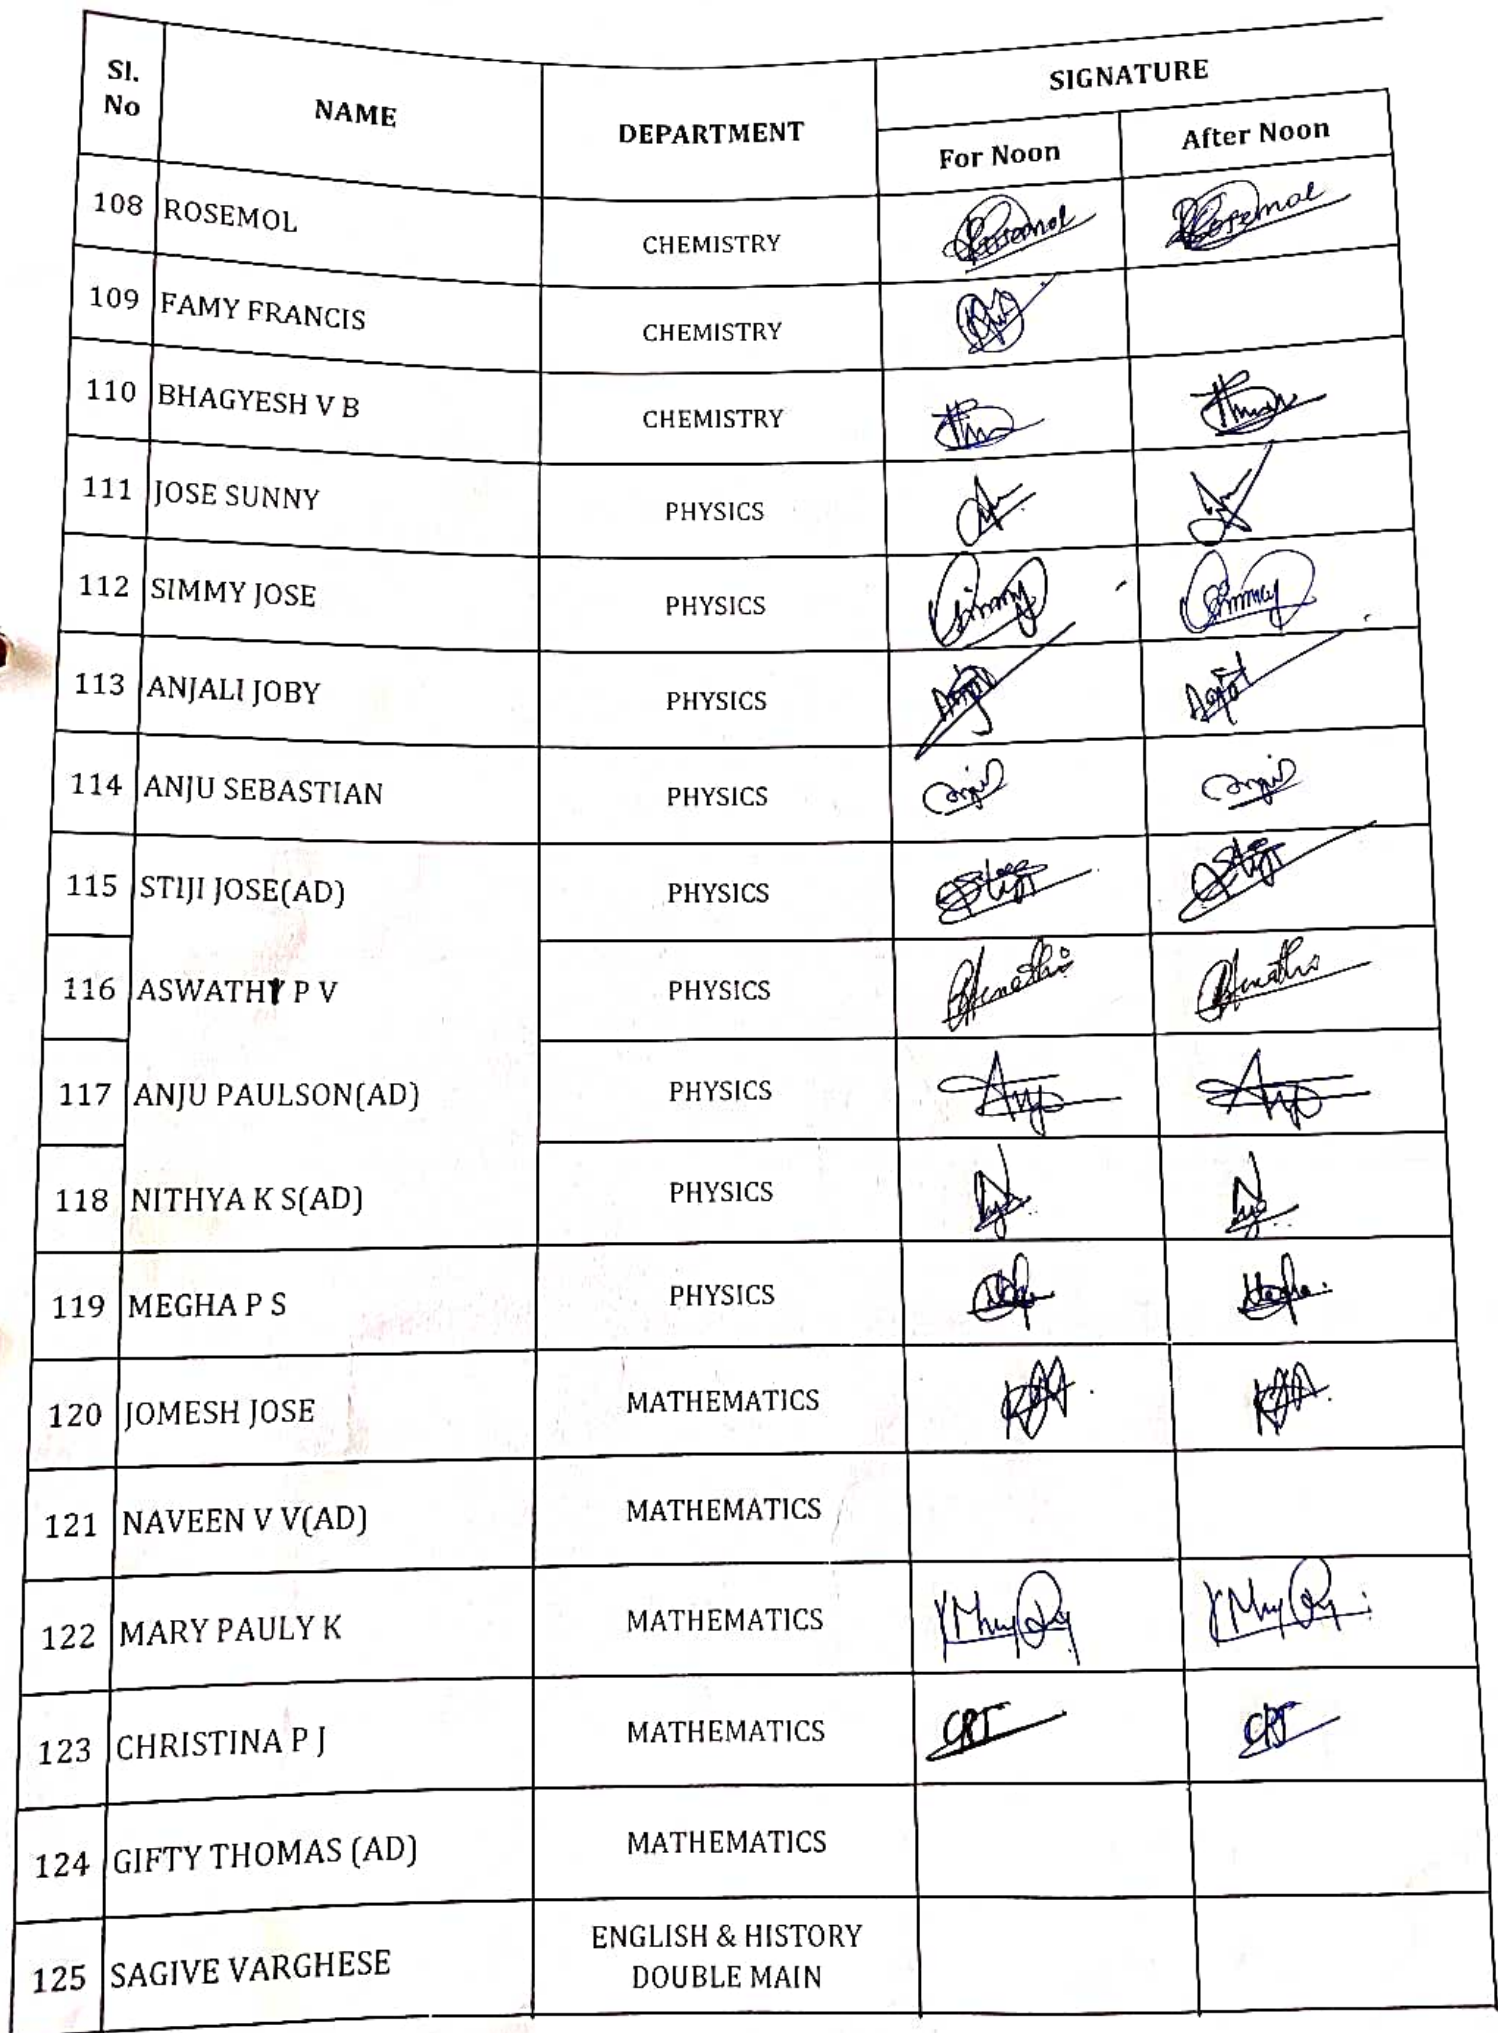 Sl. No NAME DEPARTMENT SIGNATURE
For Noon After Noon
108 ROSEMOL CHEMISTRY Rosemol Rosemol
109 FAMY FRANCIS CHEMISTRY
110 BHAGYESH V B CHEMISTRY
111 JOSE SUNNY PHYSICS
112 SIMMY JOSE PHYSICS Simmy Simmy
113 ANJALI JOBY PHYSICS
114 ANJU SEBASTIAN PHYSICS
115 STIJI JOSE(AD) PHYSICS
116 ASWATHY P V PHYSICS
117 ANJU PAULSON(AD) PHYSICS
118 NITHYA K S(AD) PHYSICS
119 MEGHA P S PHYSICS
120 JOMESH JOSE MATHEMATICS
121 NAVEEN V V(AD) MATHEMATICS
122 MARY PAULY K MATHEMATICS
123 CHRISTINA P J MATHEMATICS
124 GIFTY THOMAS (AD) MATHEMATICS
125 SAGIVE VARGHESE ENGLISH & HISTORY
DOUBLE MAIN